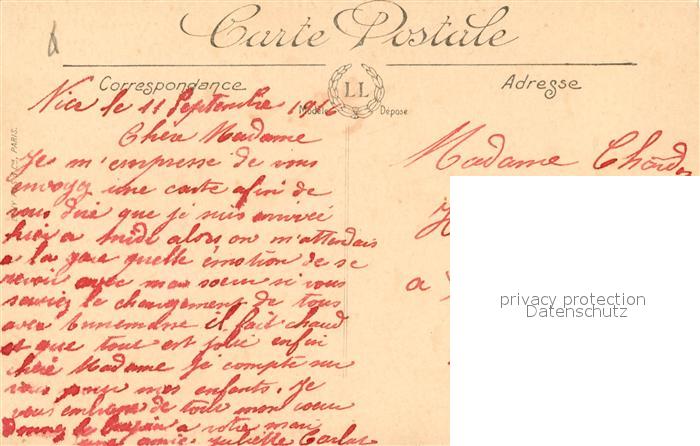 Carte Postale
Correspondance
Adresse
LL
Modèle Déposé
PARIS.
Nice le 11 Septembre
Chère Madame
Je m'empresse de vous
envoyez une carte afin de
vous dire que je suis arrivée
hier a midi alors on m'attendais
a la gare quelle émotion de se
revoir avec ma soeur si vous
saviez le changement de tous
avec Annemasse il fait chaud
et que tout est joli enfin
chère Madame je compte sur
vous pour mes enfants. Je
vous embrasse de tout mon coeur
Donnez le bonjour a votre mari
votre amie. Juliette
Madame
a
privacy protection
Datenschutz